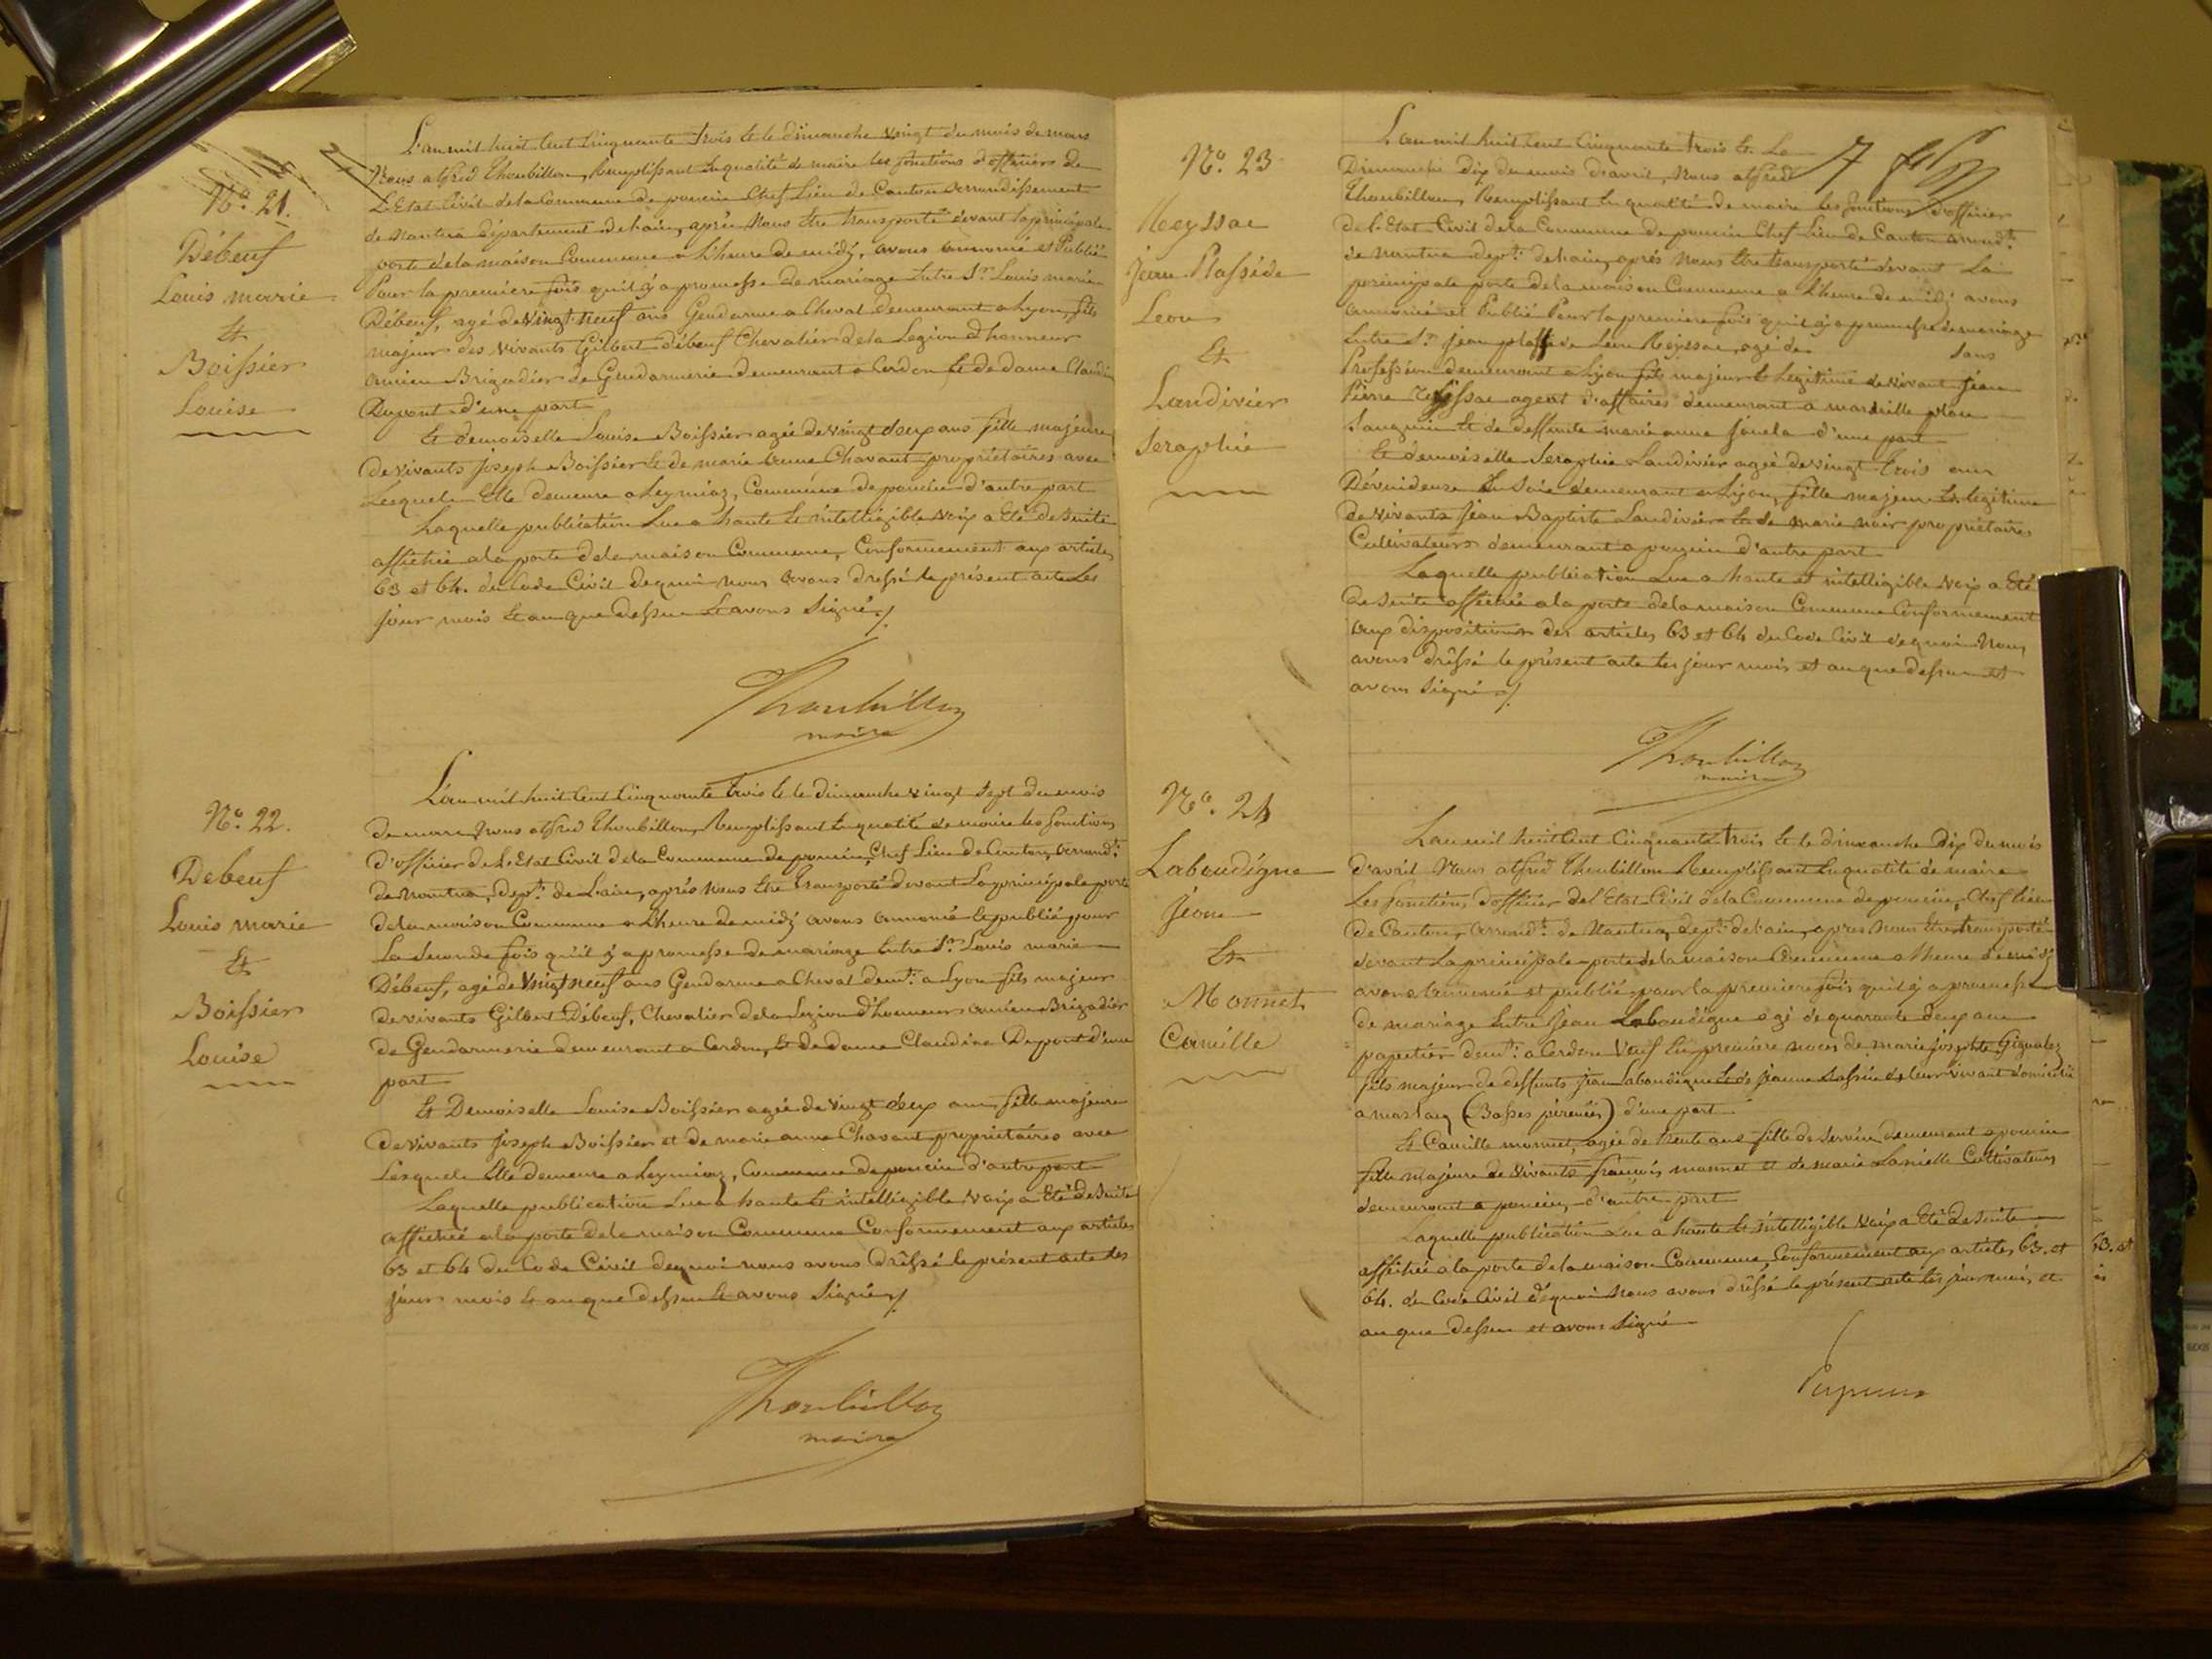 N° 21.
Débeuf
Louis marie
Et
Boissier
Louise
L'an mil huit Cent Cinquante trois Et le dimanche vingt du mois de mars
Nous alfred Thoubillon, Remplissant En qualité de maire les fonctions d'officier de
L'Etat Civil de la Commune de poncin Chef Lieu de Canton arrondissement
de nantua département de l'ain, après Nous Etre transporté devant la principale
porte de la maison Commune a L'heure de midÿ, avons annoncé et Publié
Pour la premiere fois qu'il ÿ a promesse de mariage Entre Sr Louis marie
Débeuf, agé de vingt neuf ans Gendarme a Cheval demeurant a Lyon, fils
majeur des vivants Gilbert débeuf Chevalier de la Legion d'honneur
ancien Brigadier de Gendarmerie demeurant a Cerdon Et de dame Claudine
Dupont d'une part
Et demoiselle Louise Boissier agée de vingt deux ans fille majeure
de vivants joseph Boissier Et de marie anne Chavant propriétaires avec
Lesquels Elle demeure a Leymiaz, Commune de poncin d'autre part
Laquelle publication Lue a haute Et intelligible voix a Eté de Suite
affichée a la porte de la maison Commune, Conformement aux articles
63 et 64. du Code Civil de quoi nous avons dressé le présent acte Les
jour mois Et an que dessus Et avons Signé
Thoubillon
maire
N° 22.
Debeuf
Louis marie
Et
Boissier
Louise
L'an mil huit Cent Cinquante trois Et le dimanche vingt Sept du mois
de mars, Nous alfred Thoubillon, Remplissant En qualité de maire les fonctions
d'officier de L'Etat Civil de la Commune de poncin, Chef Lieu de Canton, arrondt.
de nantua, dept. de L'ain, après nous Etre Transporté devant La principale porte
de la maison Commune a L'heure de midÿ avons annoncé Et publié pour
La Seconde fois qu'il ÿ a promesse de mariage Entre Sr Louis marie
Débeuf, agé de Vingt neuf ans Gendarme a Cheval demt. a Lyon fils majeur
de vivants Gilbert Débeuf, Chevalier de la Legion d'honneur ancien Brigadier
de Gendarmerie demeurant a Cerdon, Et de dame Claudine Dupont d'une
part
Et Demoiselle Louise Boissier agée de Vingt deux ans fille majeure
de vivants joseph Boissier et de marie anne Chavant propriétaires avec
Lesquels Elle demeure a Leymiaz, Commune de poncin d'autre part
Laquelle publication Lue a haute Et intelligible voix a Eté de Suite
affichée a la porte de la maison Commune Conformement aux articles
63 et 64 du Code Civil de quoi nous avons dréssé le présent acte les
jour mois Et an que dessus Et avons Signé
Thoubillon
maire
7
N° 23
Reyssac
Jean Plasside
Leon
Et
Landivier
Seraphie
L'an mil huit Cent Cinquante trois Et Le
Dimanche dix du mois d'avril, Nous alfred
Thoubillon, Remplissant En qualité de maire Les fonctions d'officier
de L'Etat Civil de la Commune de poncin Chef Lieu de Canton arrondt.
de nantua dept. de l'ain, après nous Etre transporté devant La
principale porte de la maison Commune a L'heure de midÿ avons
annoncé et Publié Pour la premiere fois qu'il ÿ a promesse de mariage
Entre Sr. jean plasside Leon Reyssac, agé de Sans
Profession demeurant a Lyon fils majeur Et Legitime de vivant jean
Pierre Reyssac agent d'affaires demeurant a marseille place
Et de deffunte marie anne d'une part
Et demoiselle Seraphie Landivier agée de vingt trois ans
Dévideuse En Soie demeurant a Lyon, fille majeure Et Legitime
de vivants Jean Baptiste Landivier Et de marie noir propriétaires
Cultivateurs demeurant a poncin d'autre part
Laquelle publication Lue a haute et intelligible voix a Eté
de Suite affichée a la porte de la maison Commune Conformement
aux dispositions des articles 63 et 64 du Code Civil de quoi Nous
avons dréssé le présent acte les jour mois et an que dessus et
avons Signé
Thoubillon
maire
N° 24
Laboudigue
Jean
Et
Monnet
Camille
L'an mil huit Cent Cinquante trois Et le dimanche Dix du mois
d'avril Nous alfred Thoubillon Remplissant En qualité de maire
Les fonctions d'officier de l'Etat Civil de la Commune de poncin, Chef lieu
de Canton, arrondt. de Nantua, dept. de l'ain, apres nous Etre transporté
devant La principale porte de la maison Commune a L'heure de midÿ
avons annoncé et publié pour la premiere fois qu'il ÿ a promesse
de mariage Entre Jean Laboudigue agé de quarante deux ans
papetier demt. a Cerdon Veuf En premiere noces de marie josephte
fils majeur de deffunts jean Laboudigue Et de Jeanne de leur vivant domicilié
a maslacq (Basses pirenées) d'une part
Et Camille monnet, agée de trente ans fille de Service demeurant a poncin
fille majeure de vivants françois monnet et de marie Cultivateurs
demeurant a poncin, d'autre part
Laquelle publication Lue a haute Et intelligible Voix a Eté de Suite
affichée a la porte de la maison Commune, Conformement aux articles 63. et
64. du Code Civil de quoi Nous avons dréssé le présent acte les jour mois et
an que dessus et avons Signé
63. et